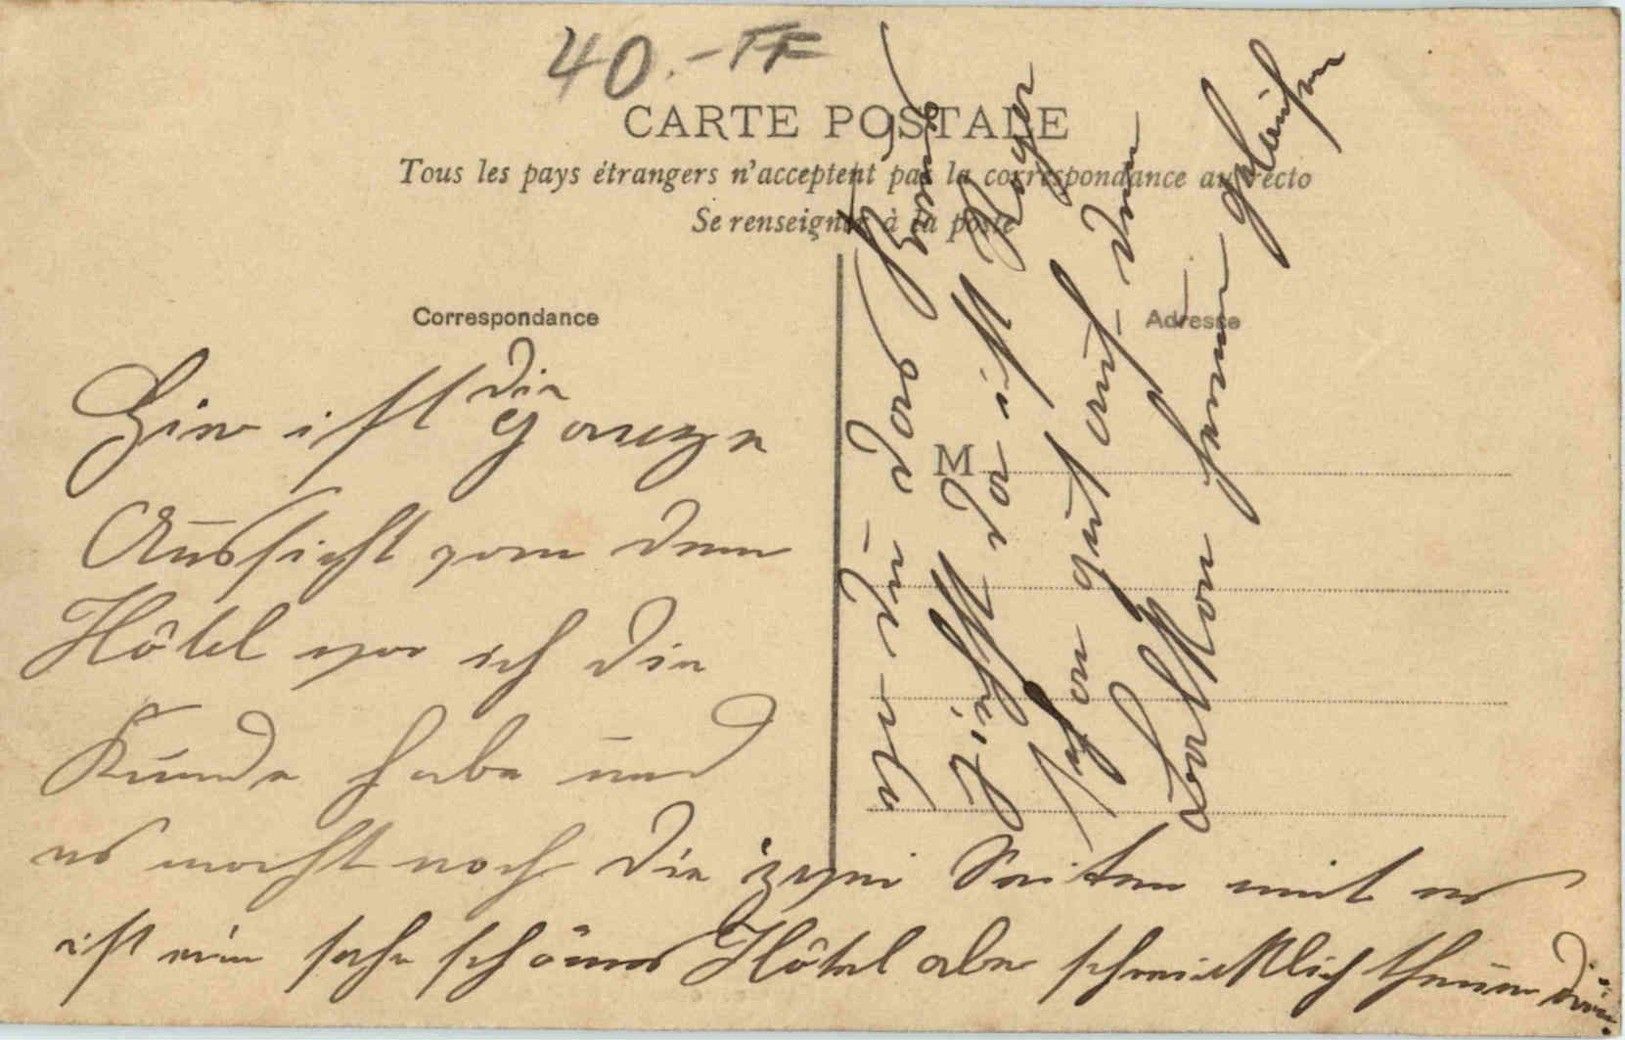 40.- FF
CARTE POSTALE
Tous les pays étrangers n'acceptent pas la correspondance au recto
Se renseigner à la poste
Correspondance
Adresse
M
Hier ist die ganze
Aussicht von dem
Hôtel wo ich die
Kunde habe und
es macht noch die zwei Seiten mit es
ist ein sehr schönes Hôtel aber schrecklich theuer
wo du das
siehst da ist Roger
schon gut auf dem
Balkon